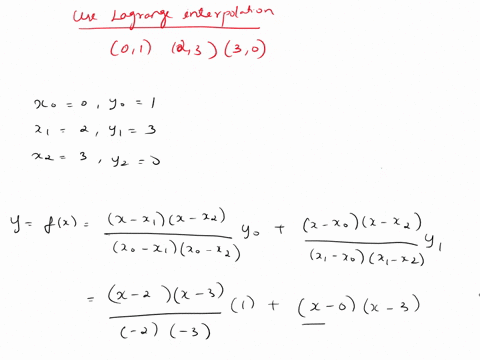 Use Lagrange interpolation
(0,1) (2,3) (3,0)
x0 = 0, y0 = 1
x1 = 2, y1 = 3
x2 = 3, y2 = 0
y = f(x) = (x-x1)(x-x2) / (x0-x1)(x0-x2) y0 + (x-x0)(x-x2) / (x1-x0)(x1-x2) y1
= (x-2)(x-3) / (-2)(-3) (1) + (x-0)(x-3)